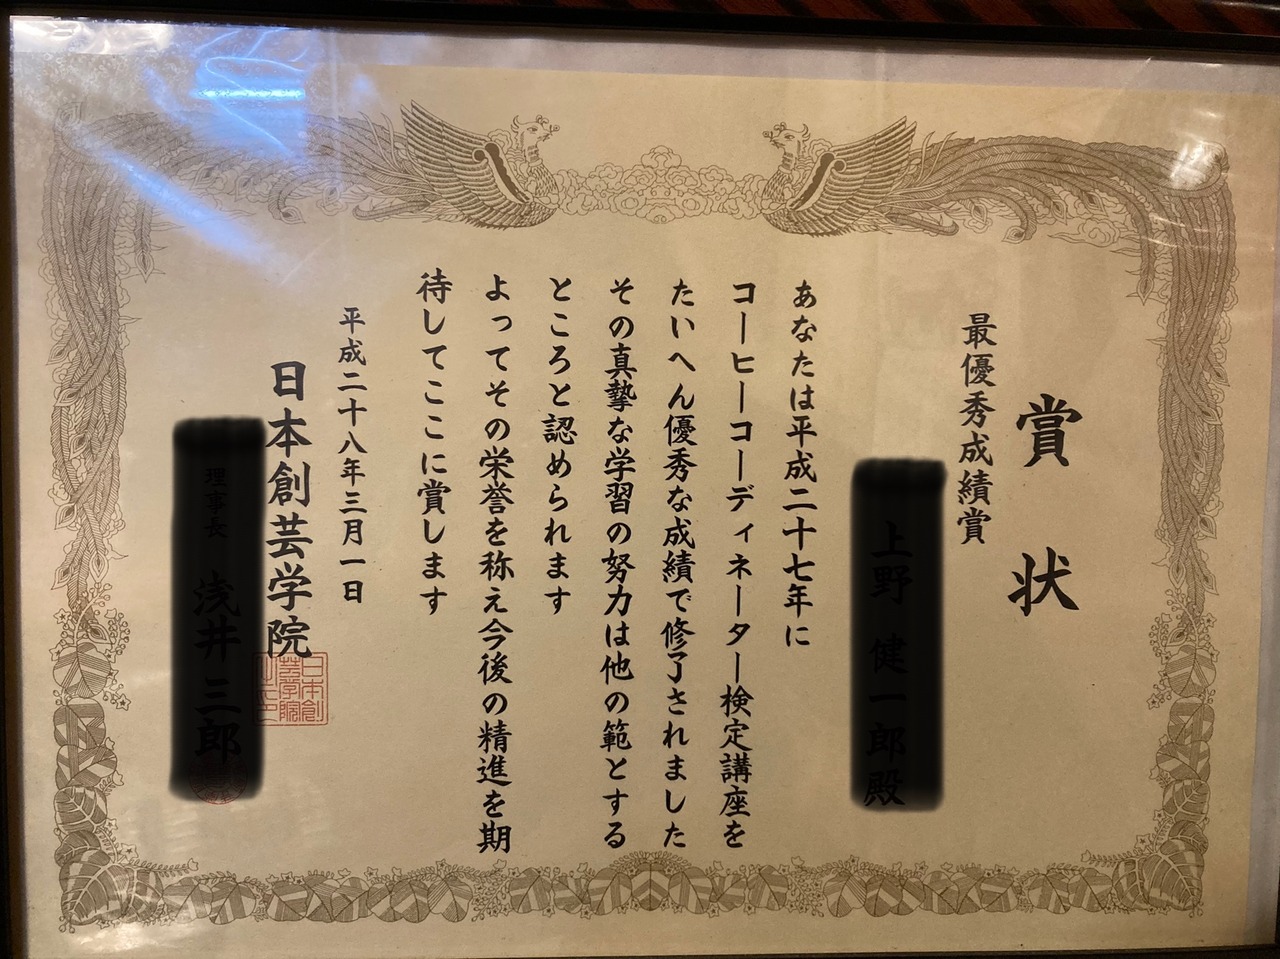 賞状
最優秀成績賞
あなたは平成二十七年に
コーヒーコーディネーター検定講座を
たいへん優秀な成績で修了されました
その真摯な学習の努力は他の範とする
ところと認められます
よってその栄誉を称え今後の精進を期
待してここに賞します
平成二十八年三月一日
日本創芸学院
日本創
芸学院